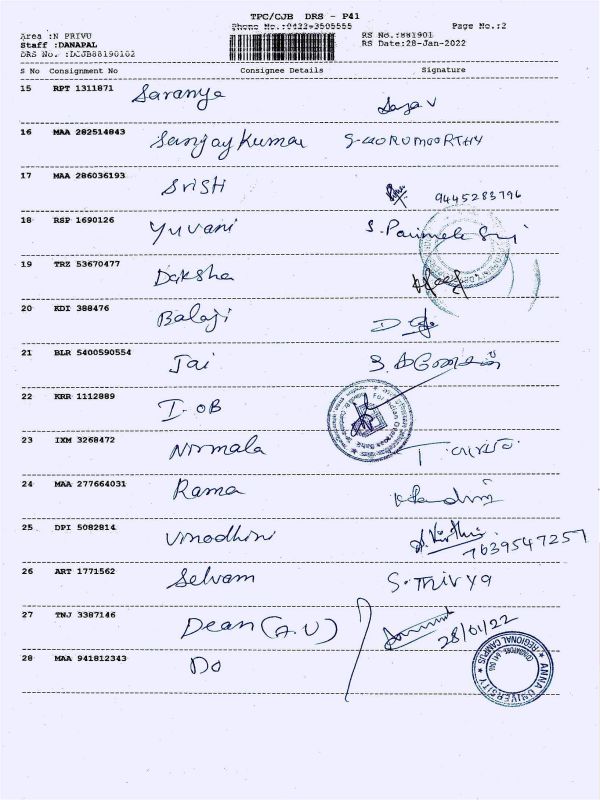 TPC/CJB DRS - P41
Phone No.:0422-3505555
Page No.:2
Area :N PRIVU
Staff :DANAPAL
DRS No. :DCJB88190102
RS No.:881901
RS Date:28-Jan-2022
S No Consignment No Consignee Details Signature
15 RPT 1311871 Saranya
16 MAA 282514843 Sanjay Kumar
17 MAA 286036193 Sristi 9445283796
18 RSP 1690126 Yuvani
19 TRZ 53670477 Daksha
20 KDI 388476 Balaji
21 BLR 5400590554 Jai
22 KRR 1112889 I.OB
23 IXM 3268472 Nirmala
24 MAA 277664031 Rama
25 DPI 5082814 Vinodhini 7639547257
26 ART 1771562 Selvam S. Thivya
27 TNJ 3387146 Dean (A.U) 28/01/22
28 MAA 941812343 Do
ANNA UNIVERSITY
REGIONAL CAMPUS